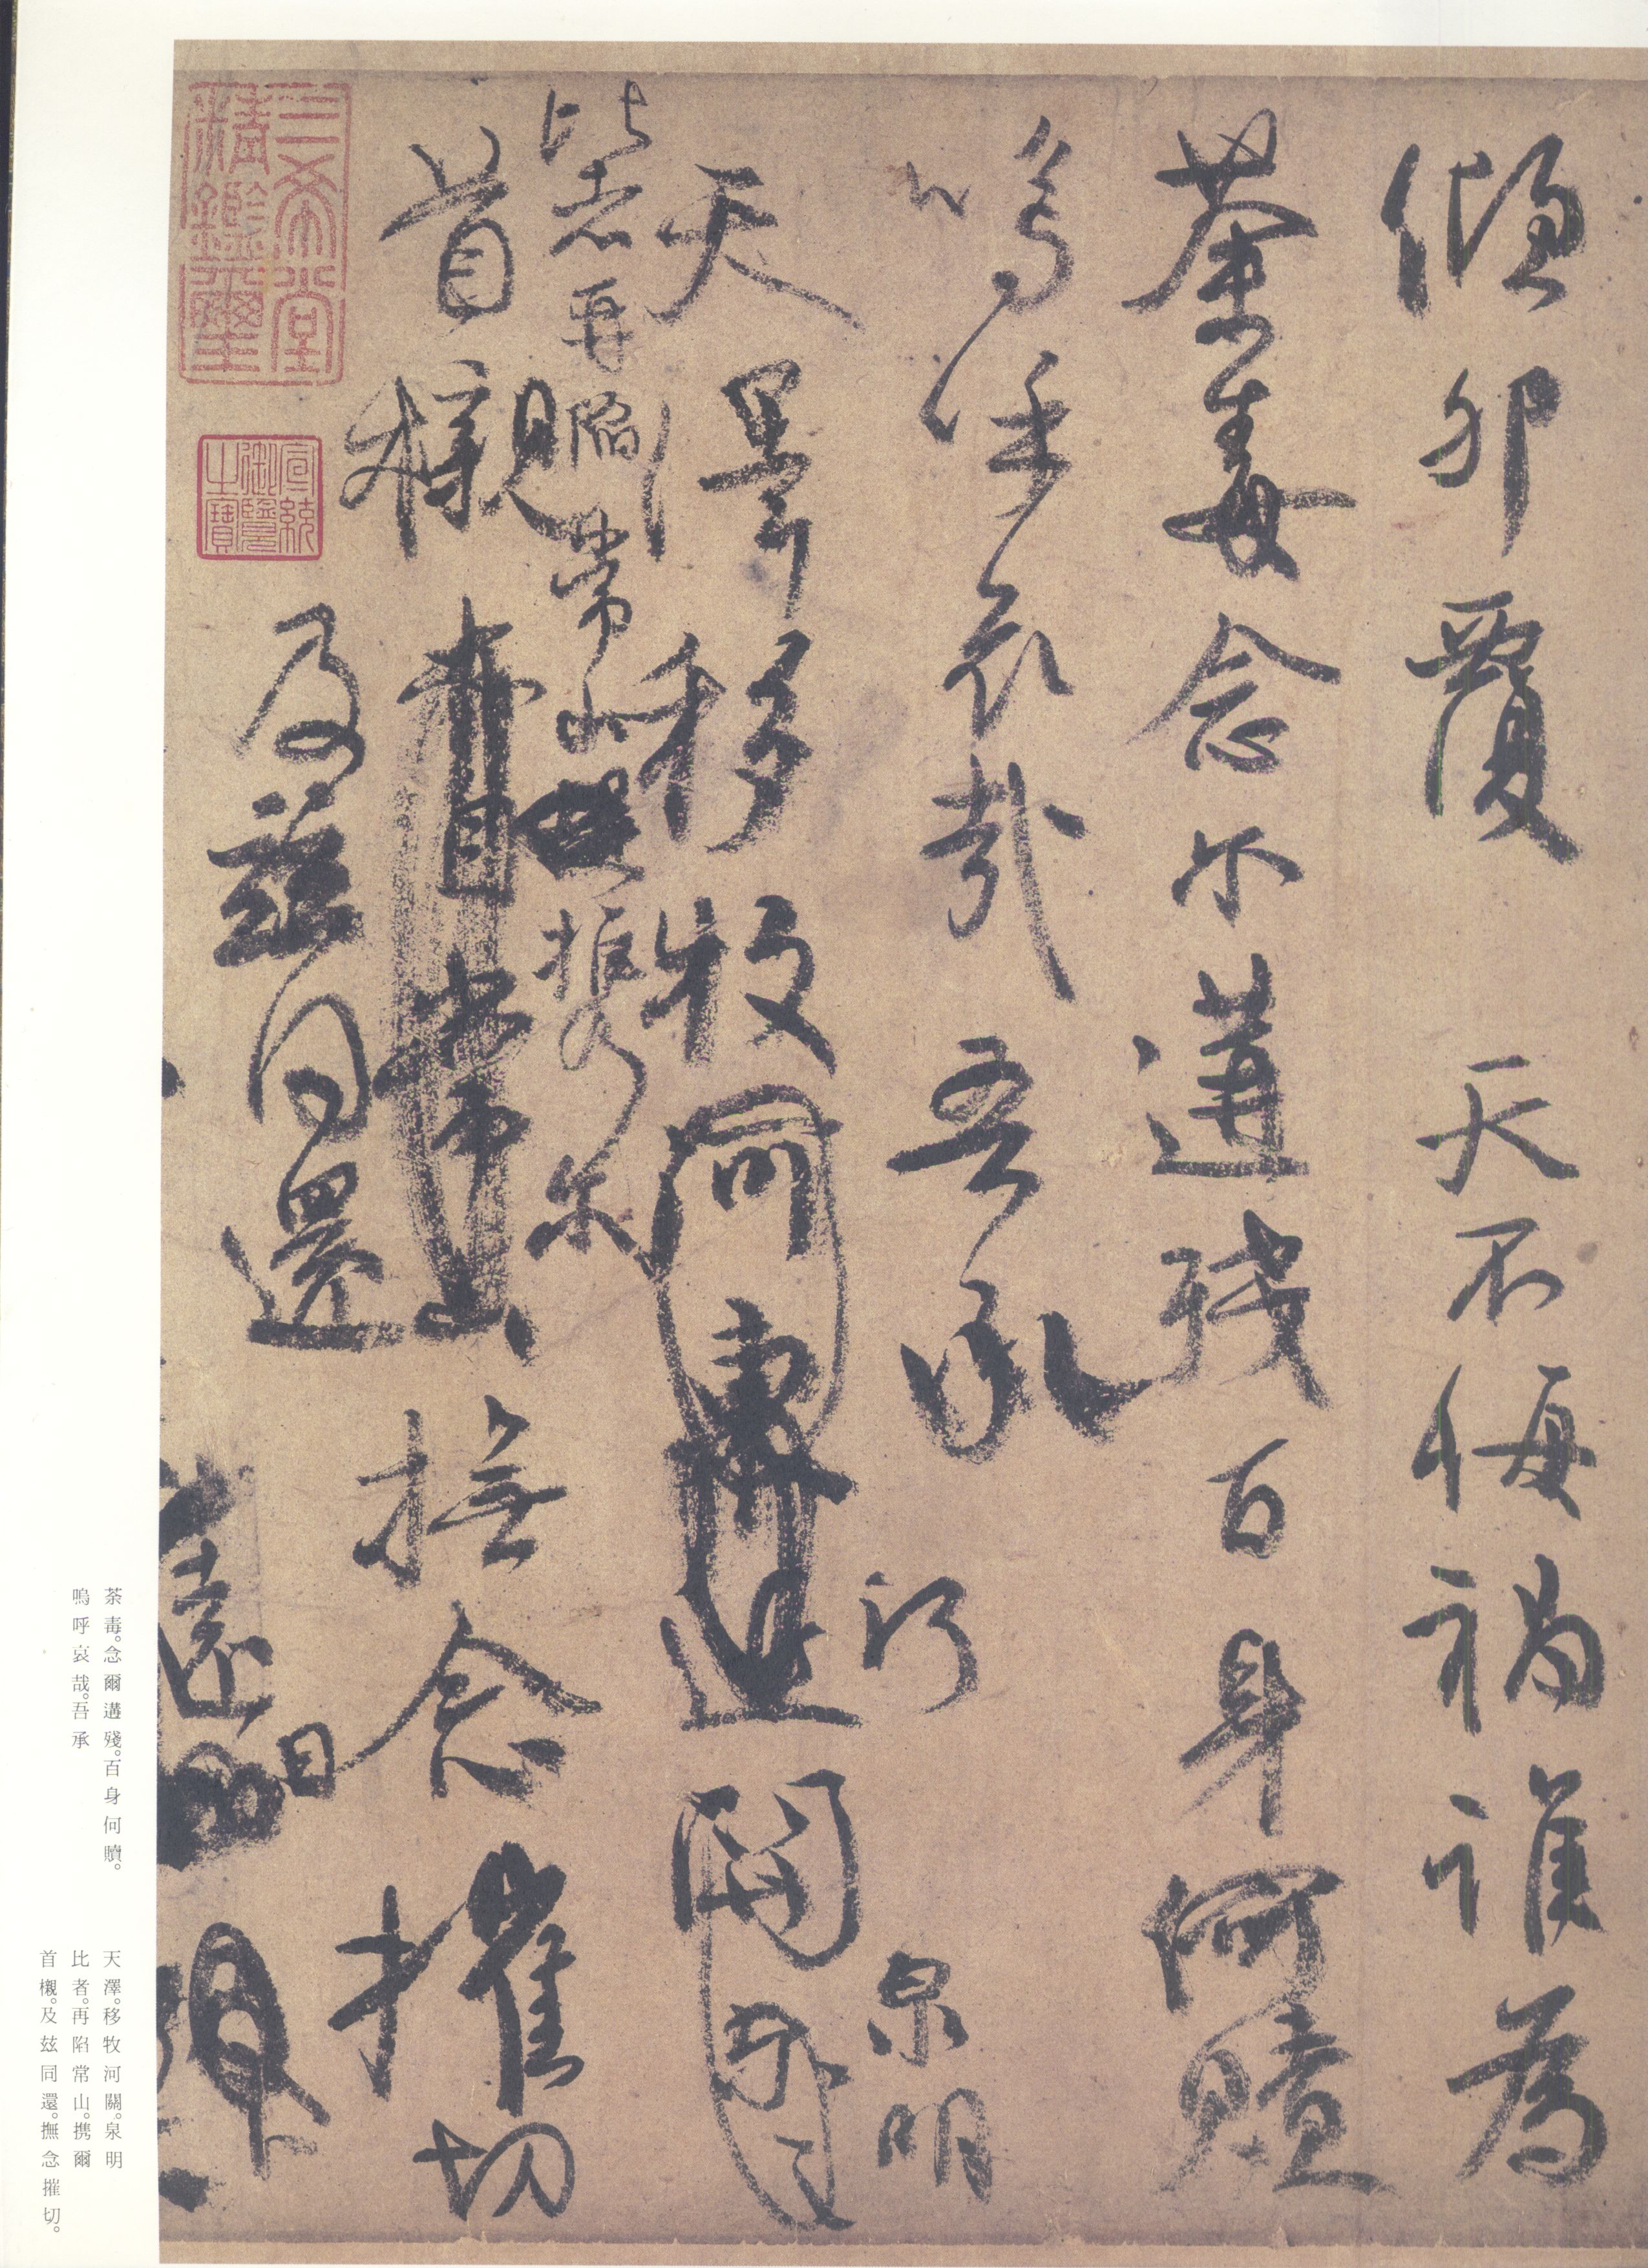 傾卵覆天不悔禍誰為
荼毒念尔遘殘百身何贖
嗚呼哀哉吾承
天澤移牧河關
河
泉明
比者再陷常山携尔
首櫬
常山
撫念摧切
及茲同還
遠
日
三希堂
精鑑璽
宣統
御覽
之寶
荼毒。念爾遘殘。百身何贖。
嗚呼哀哉。吾承
天澤。移牧河關。泉明
比者。再陷常山。携爾
首櫬。及玆同還。撫念摧切。